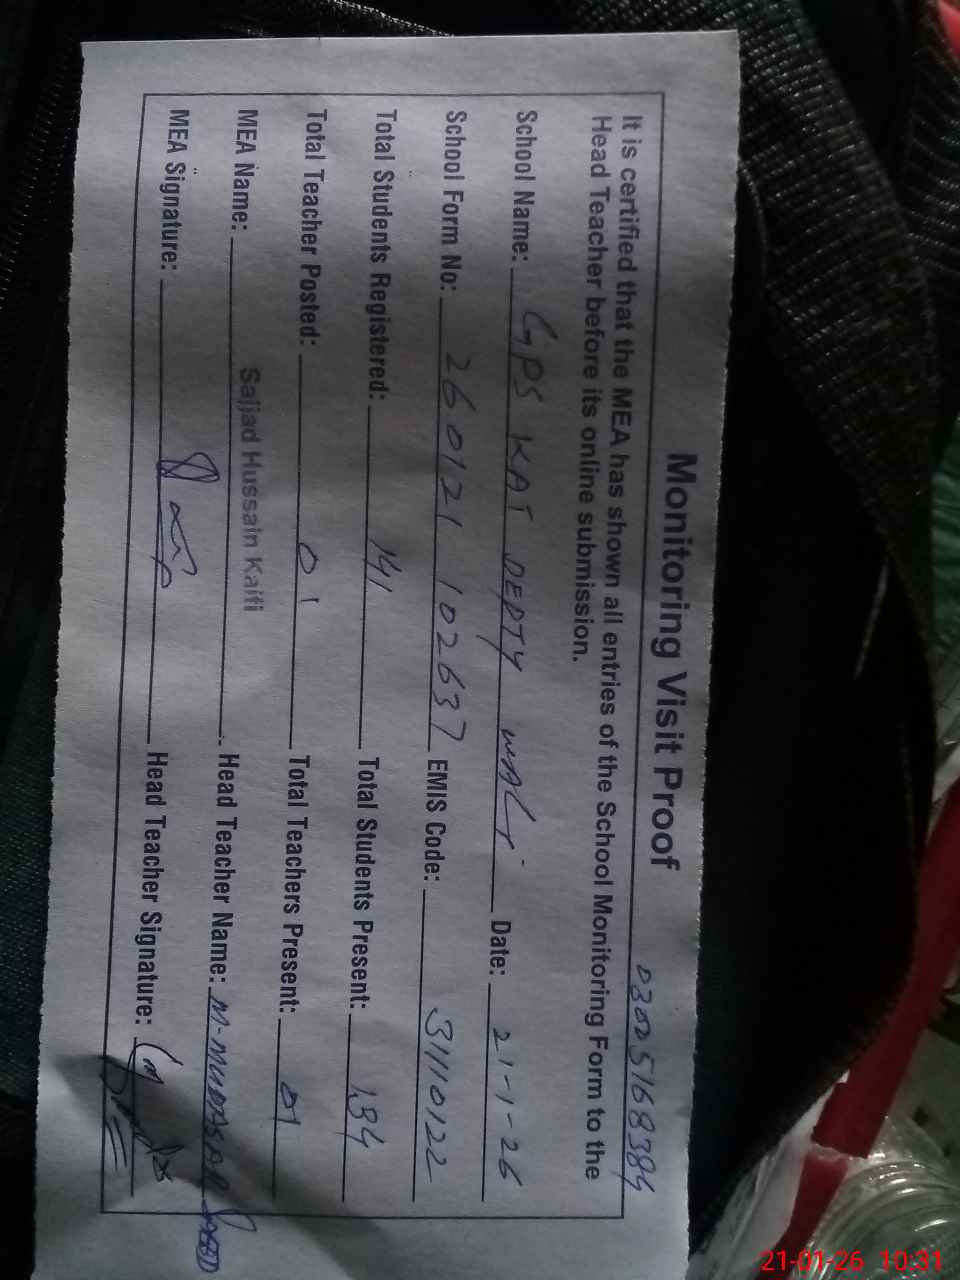 Monitoring Visit Proof
03005168384
It is certified that the MEA has shown all entries of the School Monitoring Form to the
Head Teacher before its online submission.
School Name: GPS KAT DEPTY WALI Date: 21-1-26
School Form No: 260121 102637 EMIS Code: 31110122
Total Students Registered: 141 Total Students Present: 134
Total Teacher Posted: 01 Total Teachers Present: 01
MEA Name: Sajjad Hussain Kaifi Head Teacher Name: M-MUDASAR SAEED
MEA Signature: Head Teacher Signature:
21-01-26 10:31